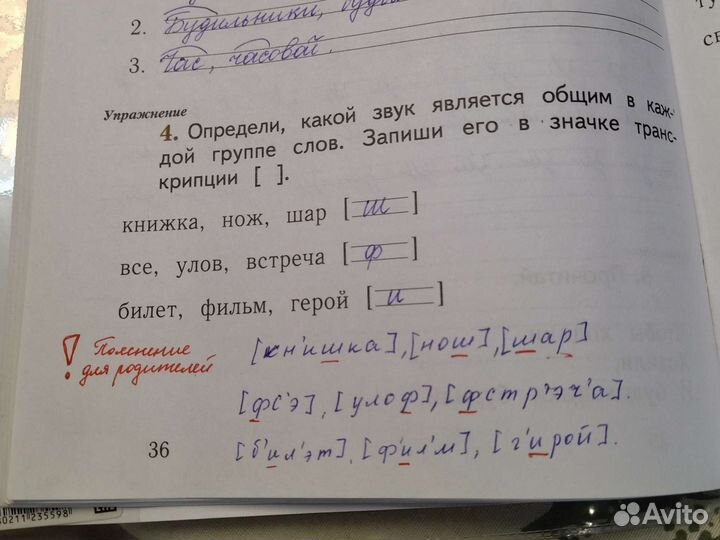 2. Будильники,
3. Час, часовой.
Упражнение
4. Определи, какой звук является общим в каж-
дой группе слов. Запиши его в значке транс-
крипции [ ].
книжка, нож, шар [ш]
все, улов, встреча [ф]
билет, фильм, герой [и]
! Пояснение для родителей
[кн'ишка], [нош], [шар]
[фс'э], [улоф], [фстр'эч'а].
[б'ил'эт], [ф'ил'м], [г'ирой].
36
0211235598
Avito